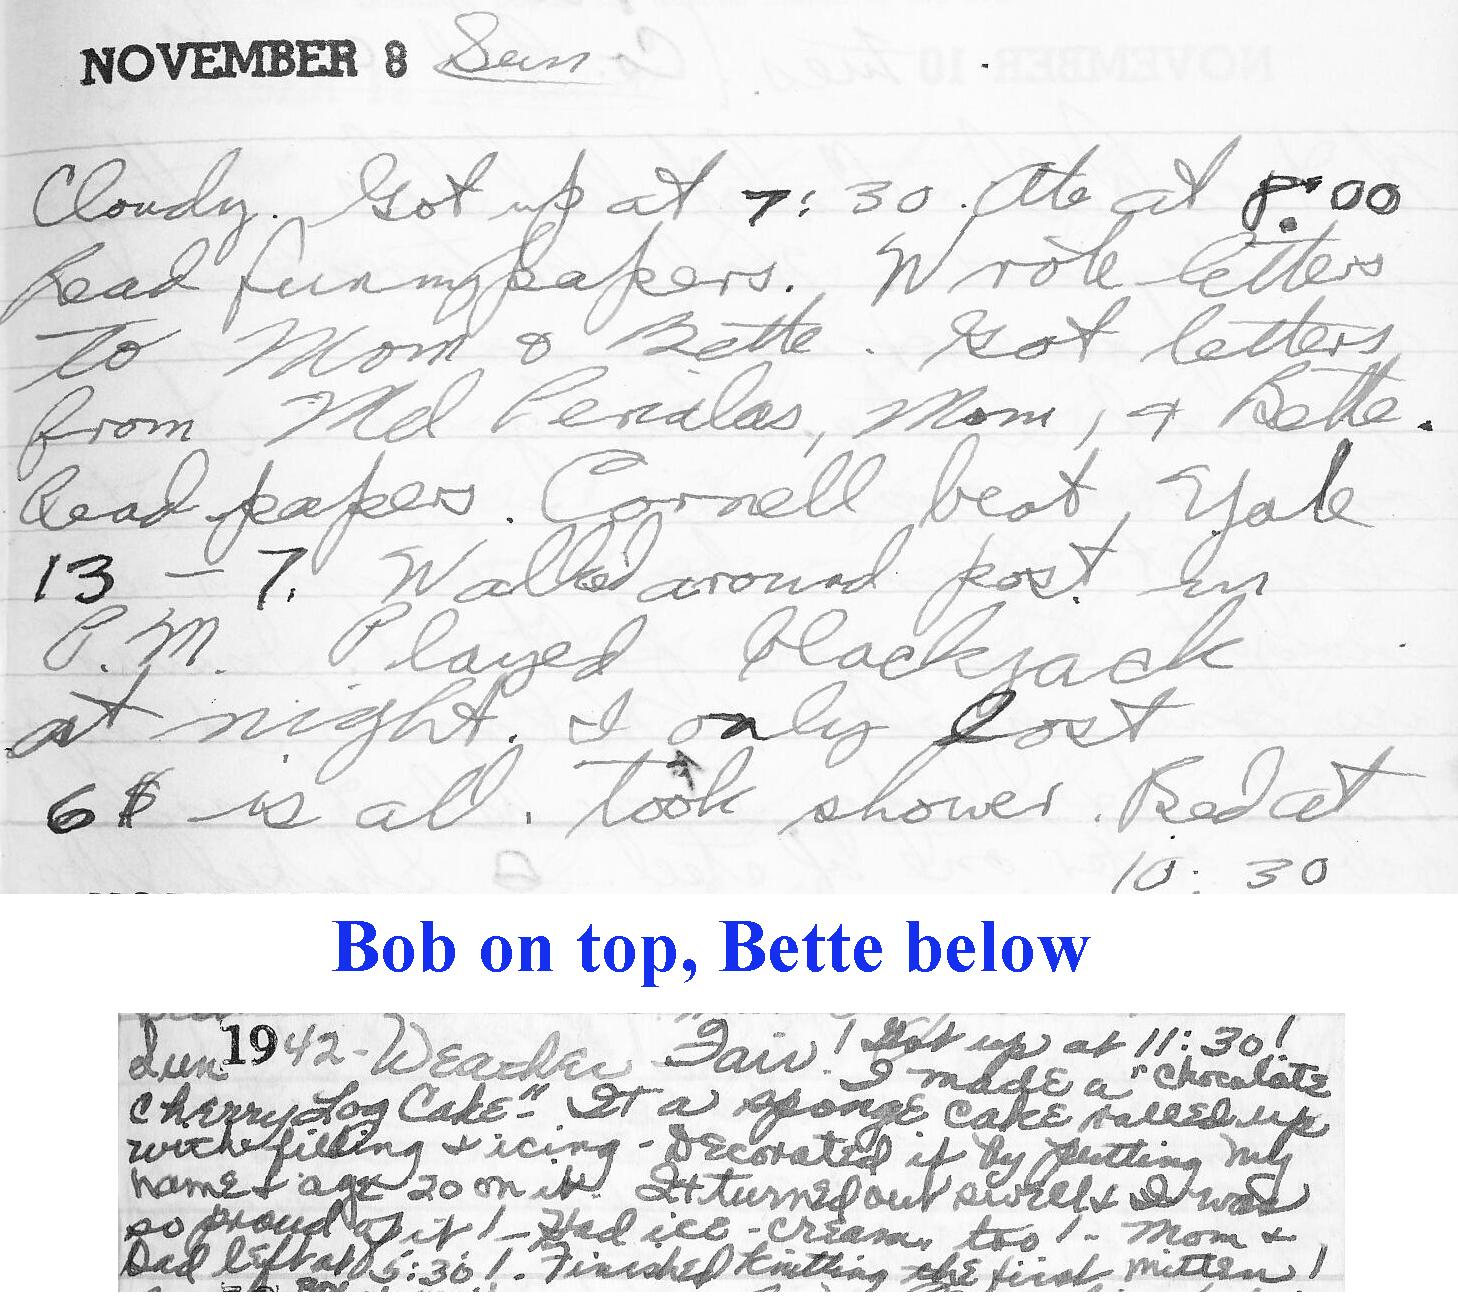 NOVEMBER 8 Sun
Cloudy. Got up at 7:30. Ate at 8:00
Read funnypapers. Wrote letters
to Mom & Bette. Got letters
from Mom, & Bette.
Read papers. Cornell beat Yale
13 – 7. Walked around post in
P.M. Played blackjack
at night. I only lost
6$ is all. Took shower. Bed at
10:30
Bob on top, Bette below
Sun 1942 - Weather Fair! Got up at 11:30!
I made a "Chocolate
Cherry Log Cake" - It a sponge cake rolled up
with filling & icing - Decorated it by putting my
name & age 20 on it. It turned out swell & I was
so proud of it! - Had ice-cream, too! - Mom &
Dad left at 5:30! - Finished knitting the first mitten!